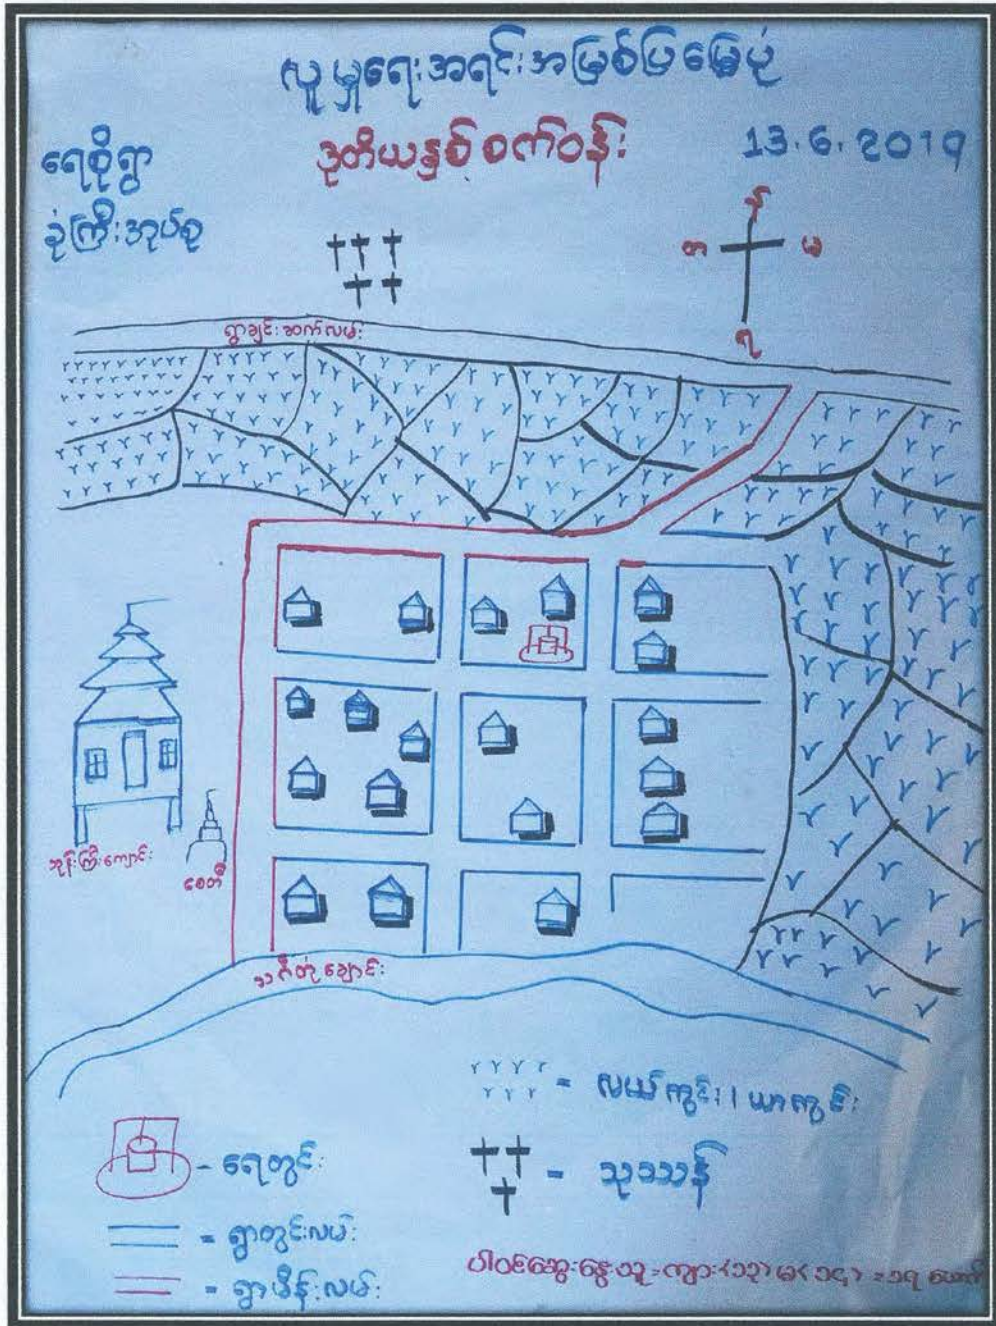 လူမှုရေးအရင်းအမြစ်ပြမြေပုံ
ရေစိုရွာ
ခုံကြီးအုပ်စု
ဒုတိယနှစ်စက်ဝန်း
13.6.2019
န်
တ
မ
ရ
ရွာချင်းဆက်လမ်း
ဘုန်းကြီးကျောင်း
စေတီ
သင်္ဂီတုံချောင်း
= လယ်ကွင်း၊ယာကွင်း
- ရေတွင်း
= သုဿန်
= ရွာတွင်းလမ်း
= ရွာမိန်းလမ်း
ပါဝင်ဆွေးနွေးသူ=ကျား